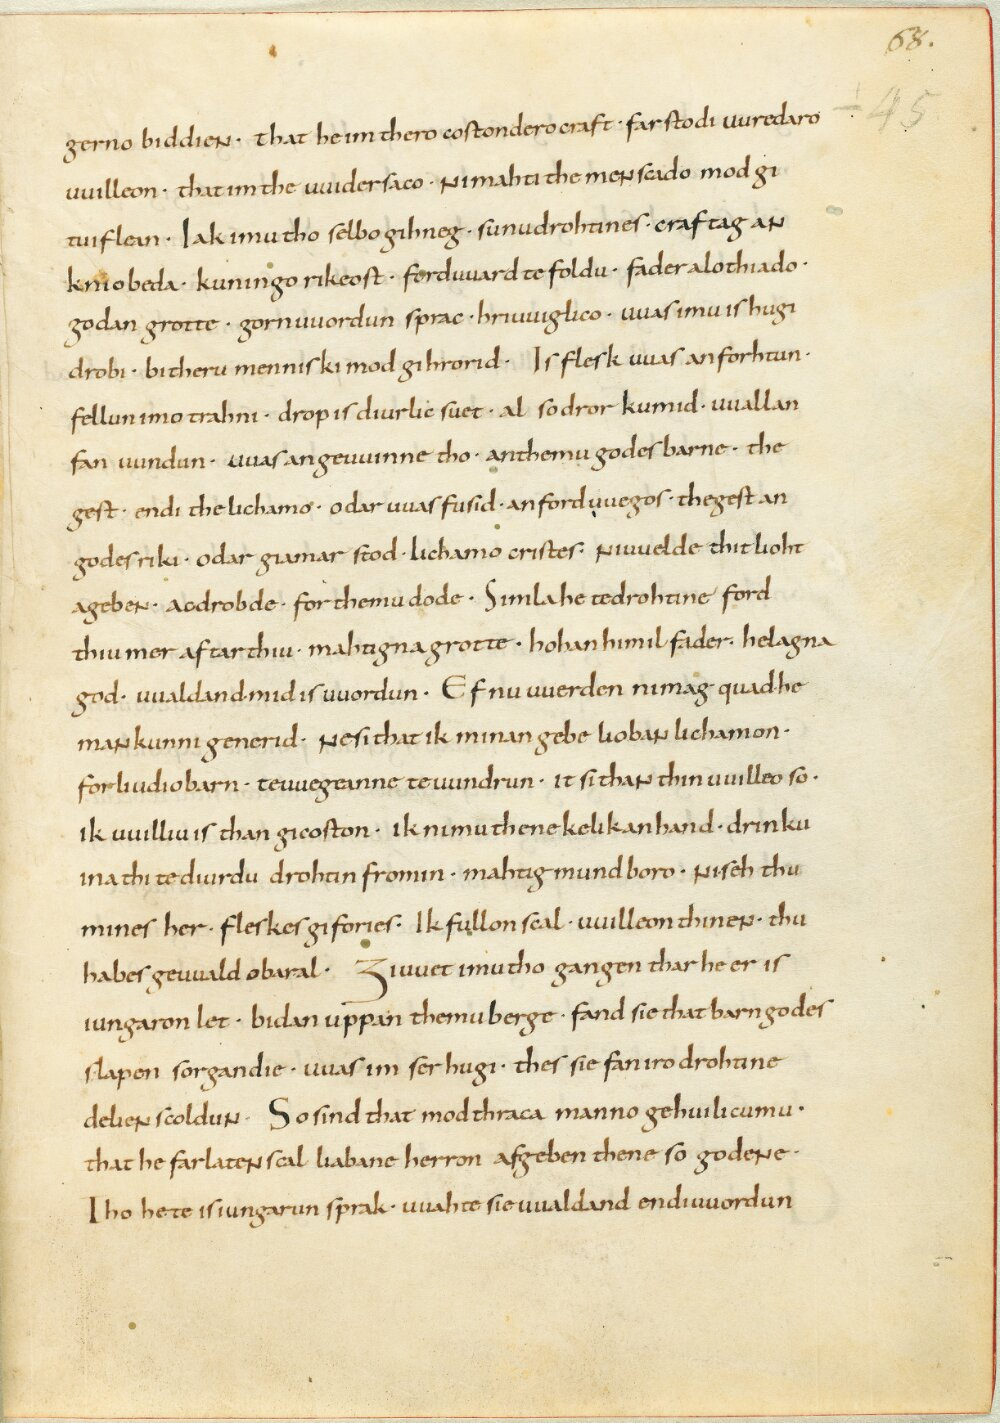 68.
÷ 45
gerno biddien · that he im thero costondero craft · farstodi uuredaro
uuilleon · that im the uuidersaco · ni mahti the menscado mod gi
tuiflean · Iak imu tho selbo gihneg · sunu drohtines · craftag an
knio beda · kuningo rikeost · forduuard te foldu · fader alothiado ·
godan grotte · gornuuordun sprac · hriuuiglico · uuas imu is hugi
drobi · bi theru menniski mod gihrorid · Is flesk uuas an forhtun ·
fellun imo trahni · drop is diurlic suet · al so dror kumid · uuallan
fan uundun · uuas an geuuinne tho · an themu godes barne · the
gest · endi the lichamo · odar uuas fusid · an forduuegos · the gest an
godes riki · odar giamar stod · lichamo cristes · ni uuelde thit lioht
ageben · ac drobde · for themu dode · Simla he te drohtine ford
thiu mer aftar thiu · mahtigna grotte · hohan himil fader · helagna
god · uualdand mid is uuordun · Ef nu uuerden ni mag quad he
mankunni generid · ne si that ik minan gebe lioban lichamon ·
for liudio barn · te uuegeanne te uundrun · it si than thin uuilleo so ·
ik uuilliu is than gicoston · ik nimu thene kelik an hand · drinku
ina thi te diurdu drohtin fro min · mahtig mundboro · ni seh thu
mines her · fleskes gifories · Ik fullon scal · uuilleon thinen · thu
habes geuuald obar al · Giuuet imu tho gangen thar he er is
iungaron let · bidan uppan themu berge · fand sie that barn godes
slapen sorgandie · uuas im ser hugi · thes sie fan iro drohtine
delien scoldun · So sind that modthraca manno gehuilicumu ·
that he farlaten scal liabane herron afgeben thene so godene ·
Tho he te is iungarun sprak · uuahte sie uualdand endi uuordun